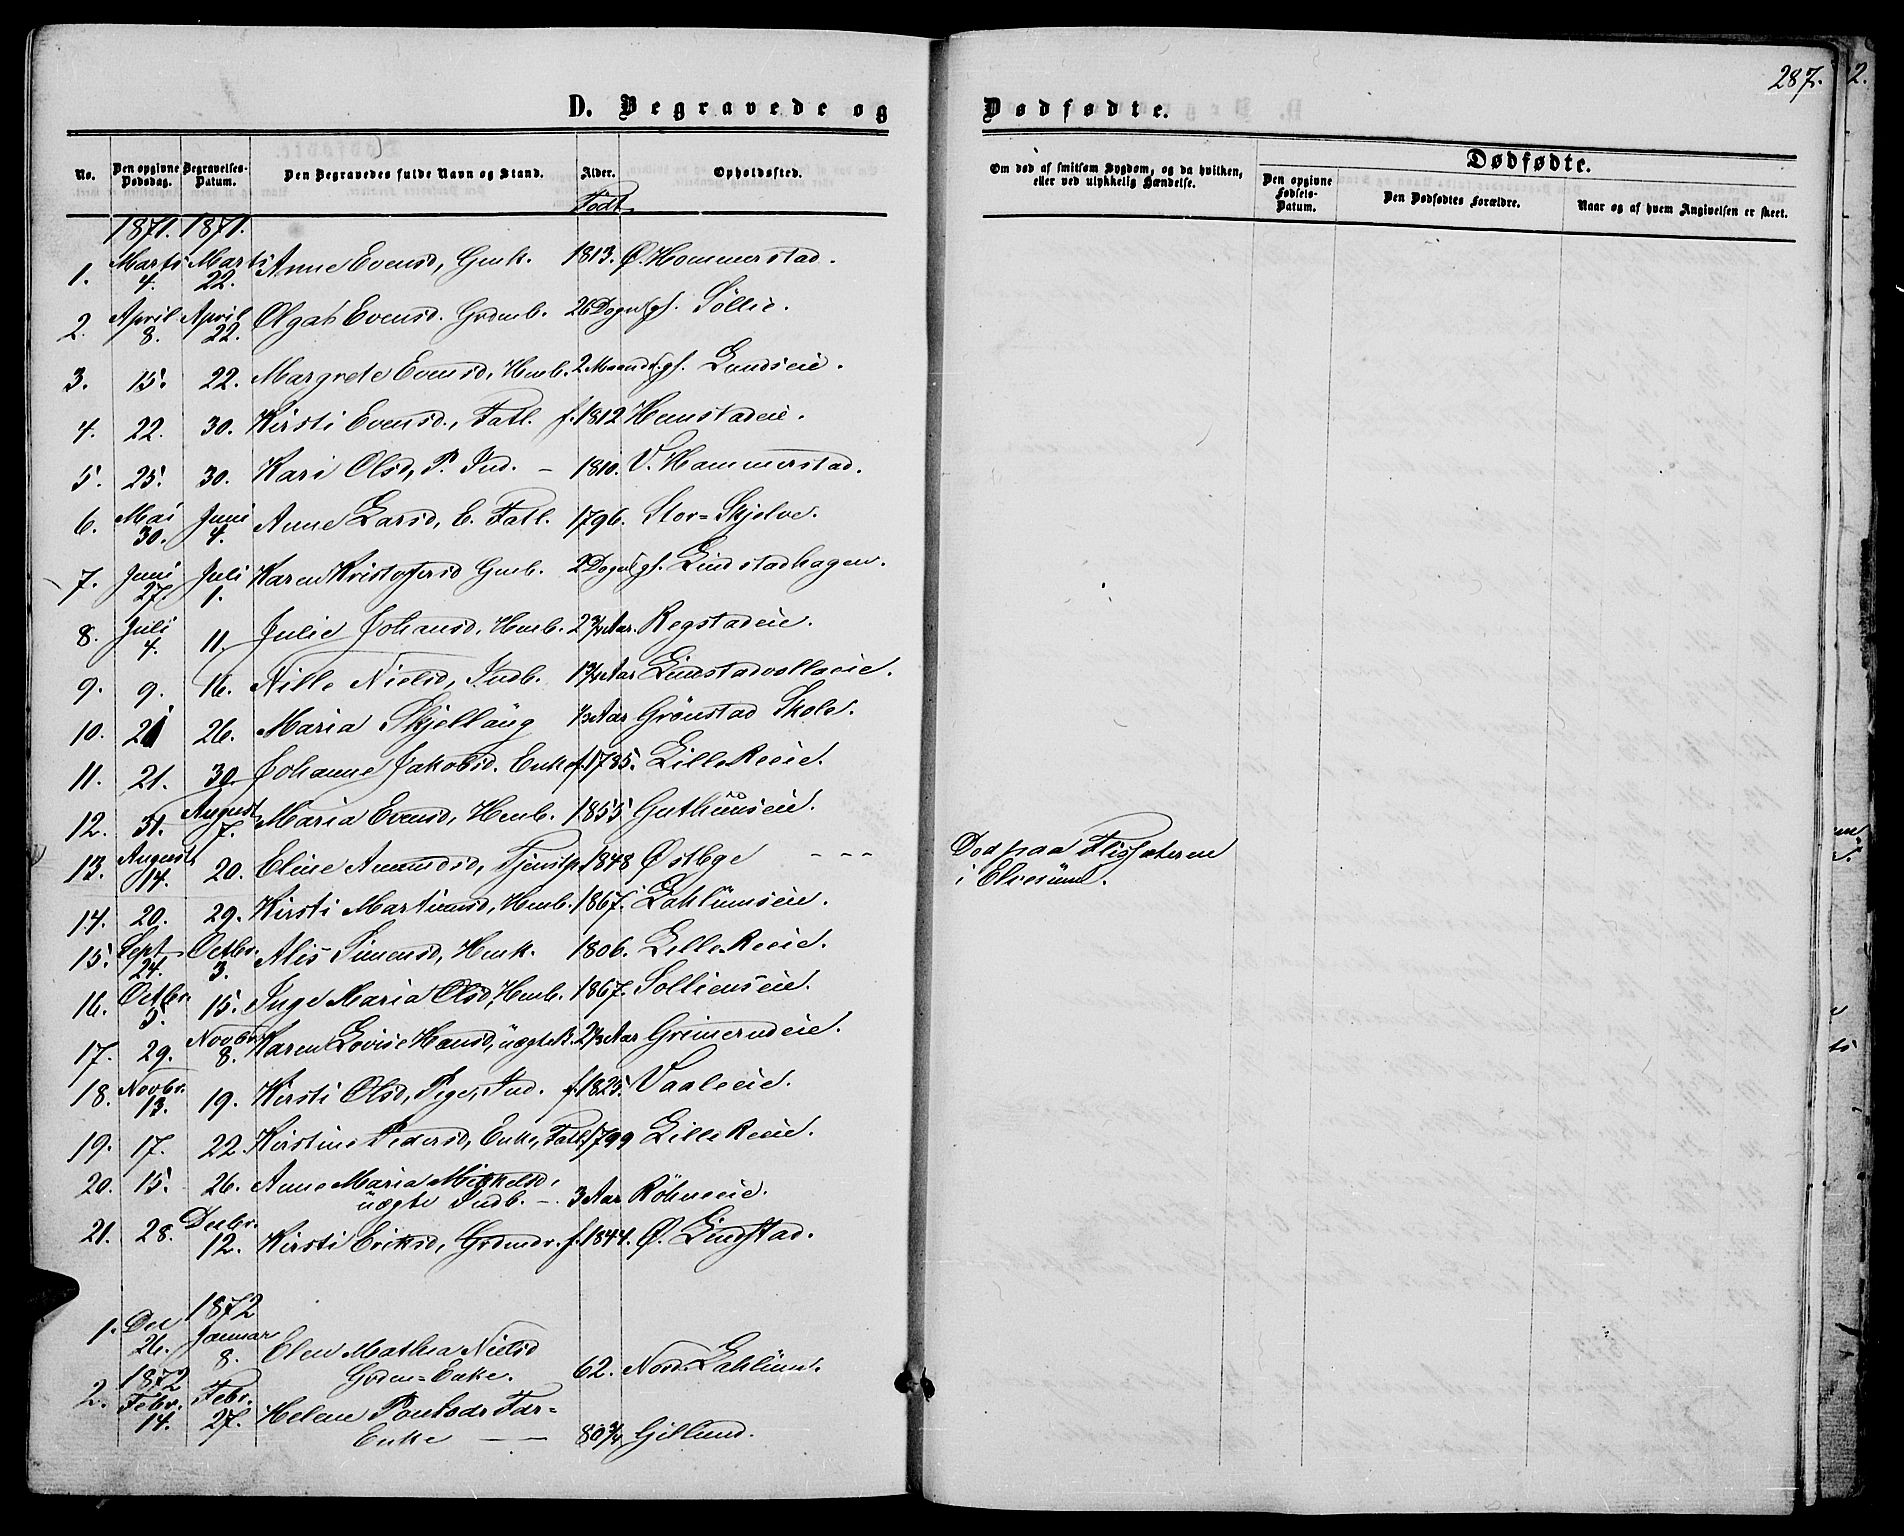 287.
2.
D. Begravede og Dødfødte.
No. Den opgivne Dødsdag. Begravelses-Datum. Den Begravedes fulde Navn og Stand. Alder. Opholdssted.
Om død af smitsom Sygdom, og da hvilken, eller ved ulykkelig Hændelse.
Dødfødte.
Den opgivne Fødsels-Datum. Den Dødfødtes Forældre. Naar og af hvem Angivelsen er skeet.
Født
1871. 1871.
1. Marts 4. Marts 22. Anne Evensd, Gmk. 1813. Ø. Hommerstad.
2. April 8. April 22. Evensd. Grdmb. 26 Døgn gl. Søllie.
3. 15. 22. Margrete Evensd, Hmb. 2 Maand. gl. Lundseie.
4. 22. 30. Kirsti Evensd., Fatl. f. 1812 Hemstadeie.
5. 25. 30. Kari Olsd, P. Ind. – 1810. V. Hammerstad.
6. Mai 30. Juni 4. Anne Larsd, E. Fatl. 1796. Stor=Skjelve.
7. Juni 27. Juli 1. Karen Kristofersd Gmb. 2 Døgn gl. Lindstadhagen.
8. Juli 4. 11. Julie Johansd, Hmb. 2 3/4 Aar. Regstadeie.
9. 9. 16. Nille Nielsd, Indb. 1 3/4 Aar Lindstadvollaeie.
10. 21 26. Maria Skjellaug 1/2 Aar Grönstad Skole.
11. 21. 30 Johanne Jakobsd. Enke f. 1785. Lille Reeie.
12. 31. August 7. Maria Evensd, Hmb. 1855 Guthuuseie.
13. August 14. 20. Eline Amundsd, Tjenstp. 1848 Østbye – – –
Død paa Flissæteren
i Elverum.
14. 20. 29. Kirsti Martinusd, Hmb. 1867. Lahlumseie.
15. Sept 24. Octbr. 3. Alis Simensd, Hmk. 1806. Lille Reeie.
16. Octbr. 5. 15. Inge Maria Olsd, Hmb. 1867. Sollienseie.
17. 29. Novbr 8. Karen Lovise Hansd, uægte B. 2 1/2 Aar Grimerudeie.
18. Novbr. 13. 19. Kirsti Olsd, Pige, Ind. f. 1825. Vaaleeie.
19. 17. 22. Kirstine Pedersd, Enke, Fatl 1799 Lille Reeie.
20. 15. 26. Anne Maria Mikkelsd,
uægte Indb. – 3 Aar Röhneeie.
21. 28. Decbr. 12. Kirsti Eriksd, Grdmdr. f. 1844. Ø. Lindstad.
1872
1. Dec 26. Januar 8. Elen Mathea Nielsd
Grdm=Enke. 62. Nord. Lahlum.
1872
2. Febr. 14. Febr. 27. Helene Far=
Enke — — 80 3/4 Gillund.